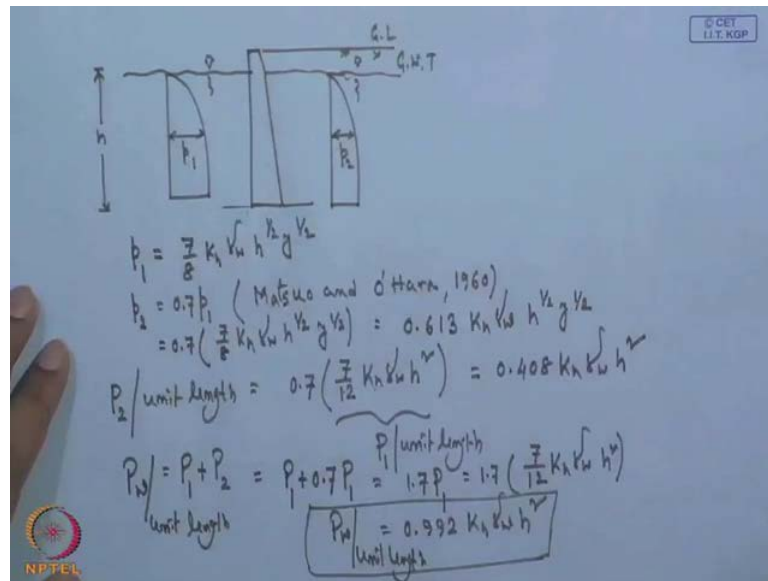 © CET
I.I.T. KGP
G.L
G.W.T
h
p₁
p₂
p₁ = 7/8 Kₕ γw h^1/2 y^1/2
p₂ = 0.7p₁ (Matsuo and O'Hara, 1960)
= 0.7(7/8 Kₕ γw h^1/2 y^1/2) = 0.613 Kₕ γw h^1/2 y^1/2
P₂/unit length = 0.7(7/12 Kₕ γw h²) = 0.408 Kₕ γw h²
P₁/unit length
Pw/unit length = P₁ + P₂ = P₁ + 0.7P₁ = 1.7P₁ = 1.7(7/12 Kₕ γw h²)
Pw/unit length = 0.992 Kₕ γw h²
NPTEL